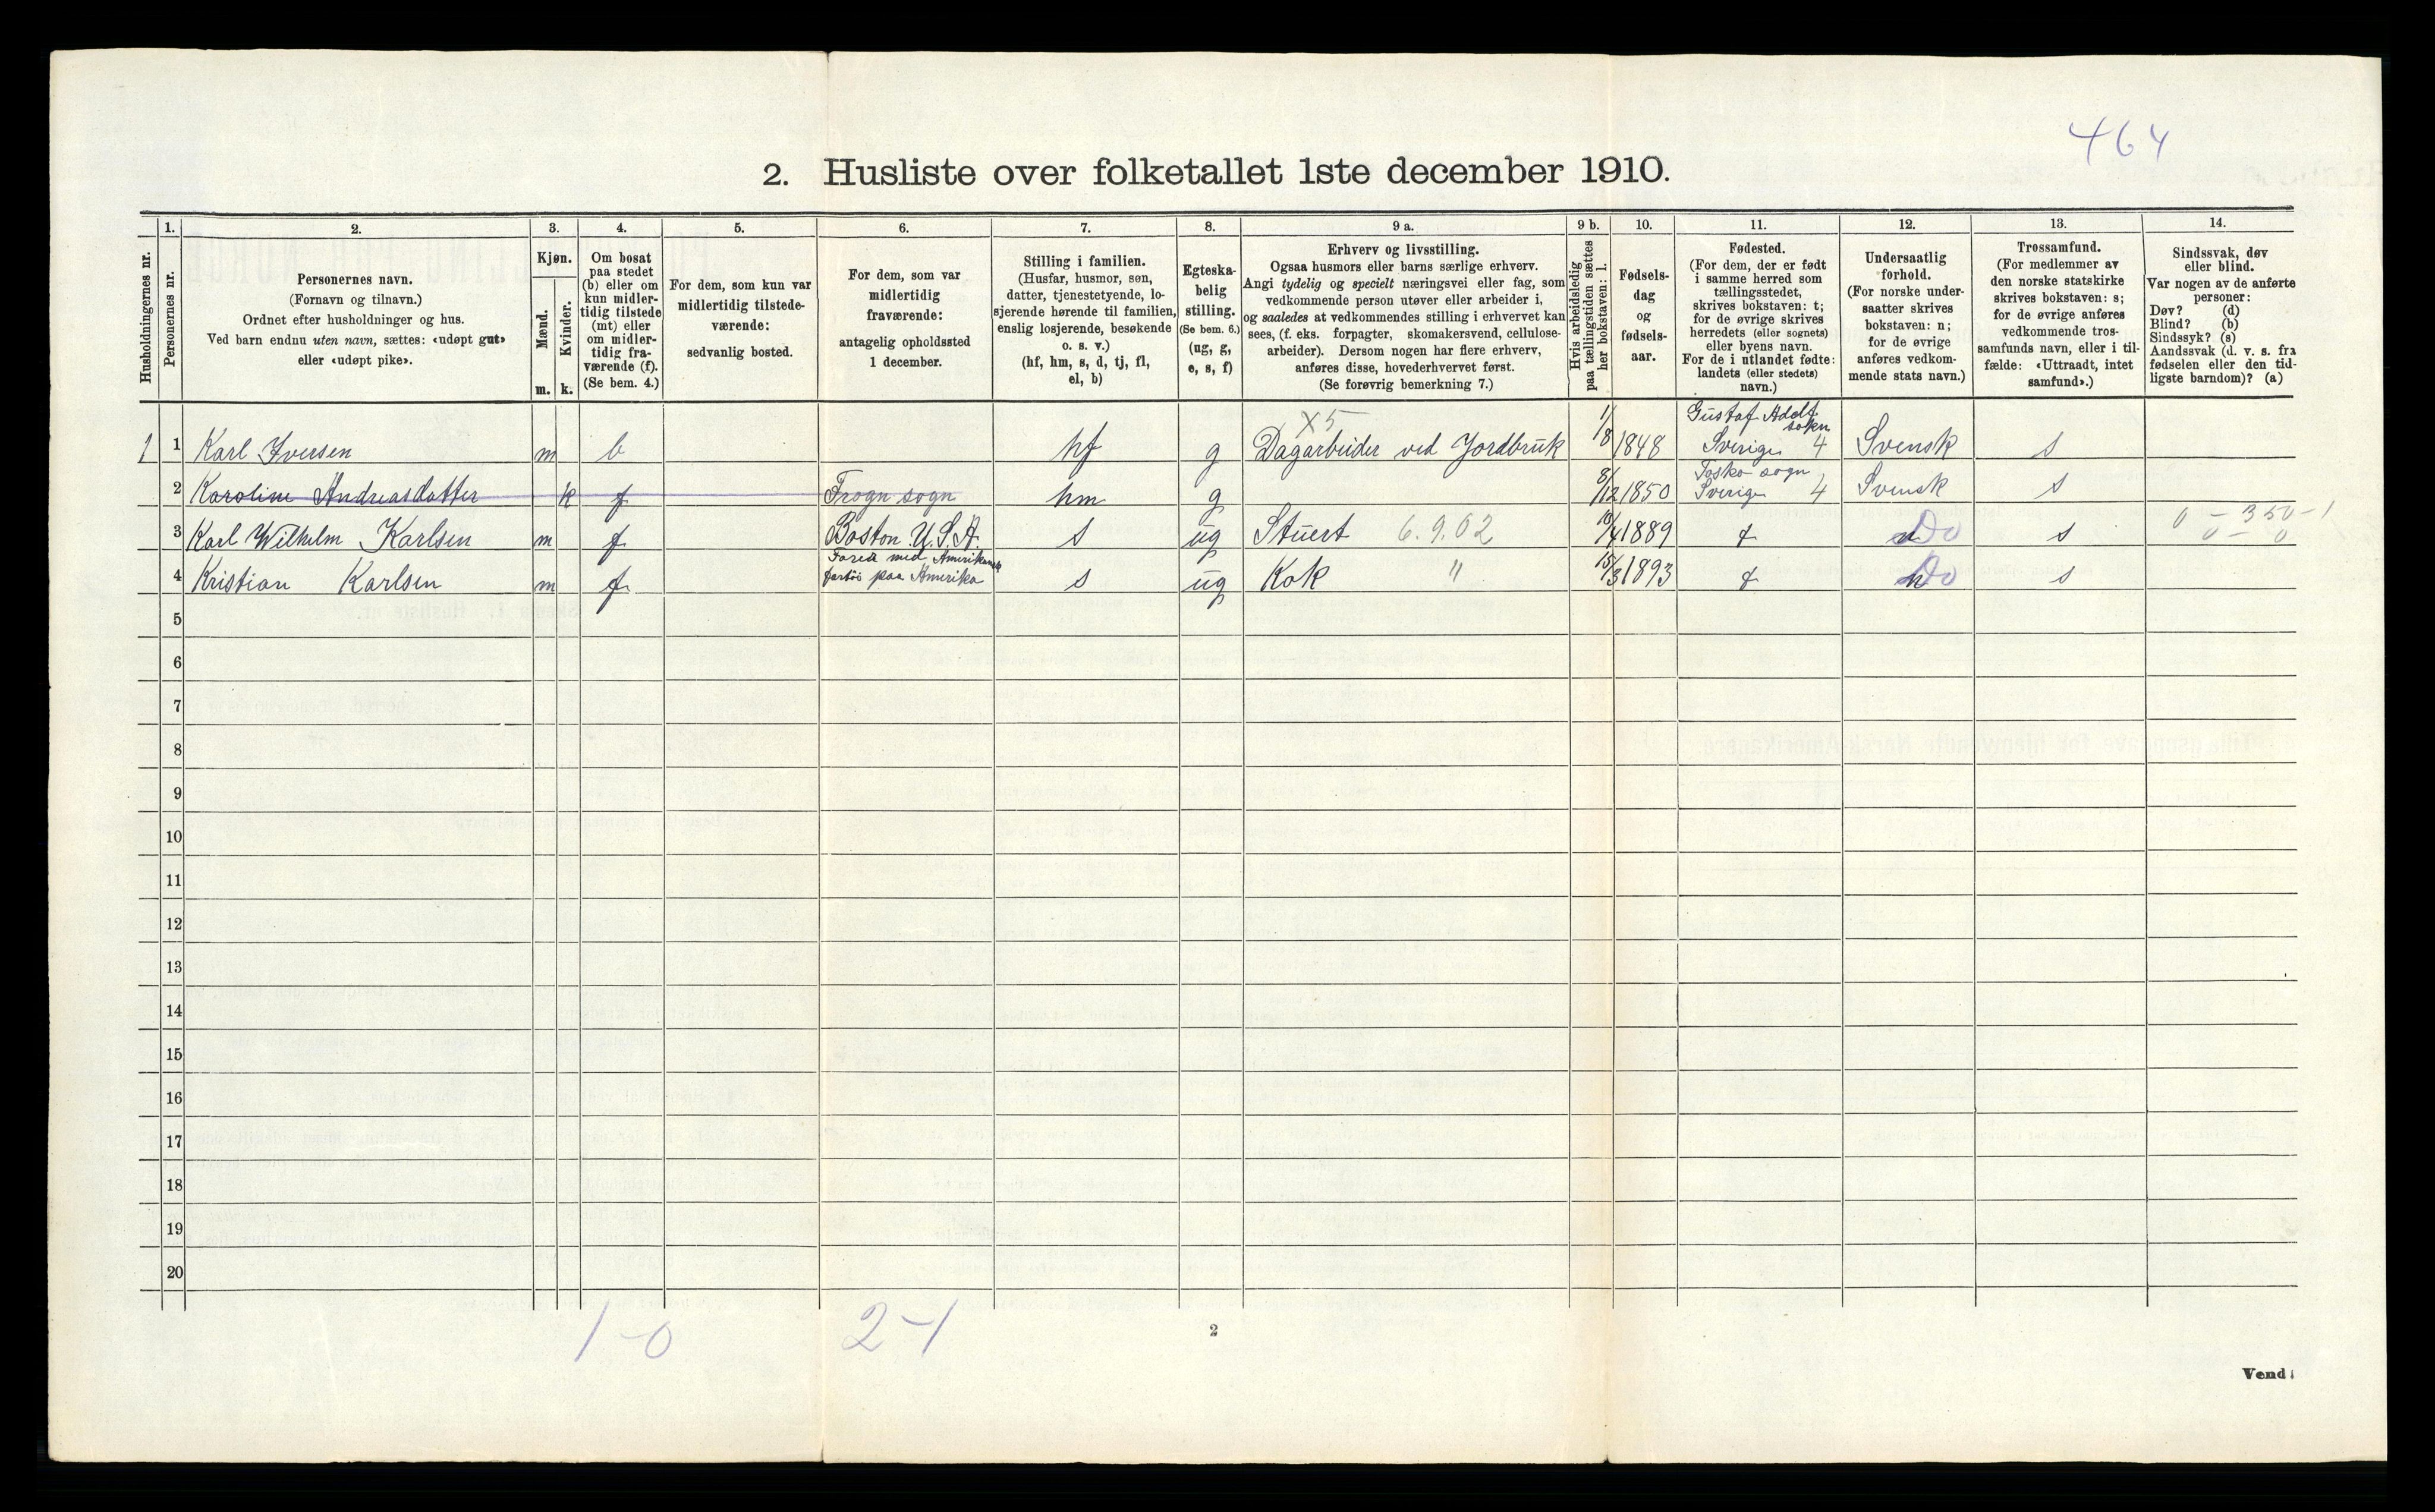 464
2. Husliste over folketallet 1ste december 1910.
Husholdningernes nr.
1.
Personernes nr.
2.
Personernes navn.
(Fornavn og tilnavn.)
Ordnet efter husholdninger og hus.
Ved barn endnu uten navn, sættes: «udøpt gut»
eller «udøpt pike».
3.
Kjøn.
Mænd.
m.
Kvinder.
k.
4.
Om bosat
paa stedet
(b) eller om
kun midler-
tidig tilstede
(mt) eller
om midler-
tidig fra-
værende (f).
(Se bem. 4.)
5.
For dem, som kun var
midlertidig tilstede-
værende:
sedvanlig bosted.
6.
For dem, som var
midlertidig
fraværende:
antagelig opholdssted
1 december.
7.
Stilling i familien.
(Husfar, husmor, søn,
datter, tjenestetyende, lo-
sjerende hørende til familien,
enslig losjerende, besøkende
o. s. v.)
(hf, hm, s, d, tj, fl,
el, b)
8.
Egteska-
belig
stilling.
(Se bem. 6.)
(ug, g,
e, s, f)
9 a.
Erhverv og livsstilling.
Ogsaa husmors eller barns særlige erhverv.
Angi tydelig og specielt næringsvei eller fag, som
vedkommende person utøver eller arbeider i,
og saaledes at vedkommendes stilling i erhvervet kan
sees, (f. eks. forpagter, skomakersvend, cellulose-
arbeider). Dersom nogen har flere erhverv,
anføres disse, hovederhvervet først.
(Se forøvrig bemerkning 7.)
9 b.
Hvis arbeidsledig
paa tællingstiden sættes
her bokstaven: l.
10.
Fødsels-
dag
og
fødsels-
aar.
11.
Fødested.
(For dem, der er født
i samme herred som
tællingsstedet,
skrives bokstaven: t;
for de øvrige skrives
herredets (eller sognets)
eller byens navn.
For de i utlandet fødte:
landets (eller stedets)
navn.)
12.
Undersaatlig
forhold.
(For norske under-
saatter skrives
bokstaven: n;
for de øvrige
anføres vedkom-
mende stats navn.)
13.
Trossamfund.
(For medlemmer av
den norske statskirke
skrives bokstaven: s;
for de øvrige anføres
vedkommende tros-
samfunds navn, eller i til-
fælde: «Uttraadt, intet
samfund».)
14.
Sindssvak, døv
eller blind.
Var nogen av de anførte
personer:
Døv? (d)
Blind? (b)
Sindssyk? (s)
Aandssvak (d. v. s. fra
fødselen eller den tid-
ligste barndom)? (a)
X5
Gustaf Adolf
sokn
1 1 Karl Iversen m b hf g Dagarbeider ved Jordbruk 1/8 1848 Sverige 4 Svensk s
sogn
2 Karoline Andreasdatter k f Frogn sogn hm g 8/12 1850 Sverige 4 Svensk s
3 Karl Wilhelm Karlsen m f Boston U.S.A. s ug Stuert 6.9.02 10/4 1889 t n Do s 0 - 350 - 1
0 - 0
med Amerikansk
4 Kristian Karlsen m f fartöi paa Amerika s ug Kok " 15/3 1893 t n Do s
5
6
7
8
9
10
11
12
13
14
15
16
17
18
19
20
1-0 2-1
2
Vend!